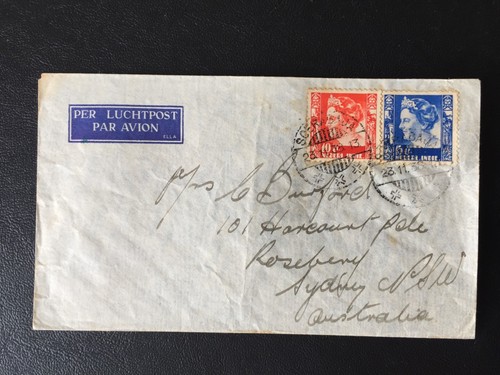 PER LUCHTPOST
PAR AVION
ELLA
10
NEDERL INDIE
NEDERL INDIE
28.11.
Mrs C Burford
101 Harcourt Pde
Rosebery
Sydney NSW
Australia